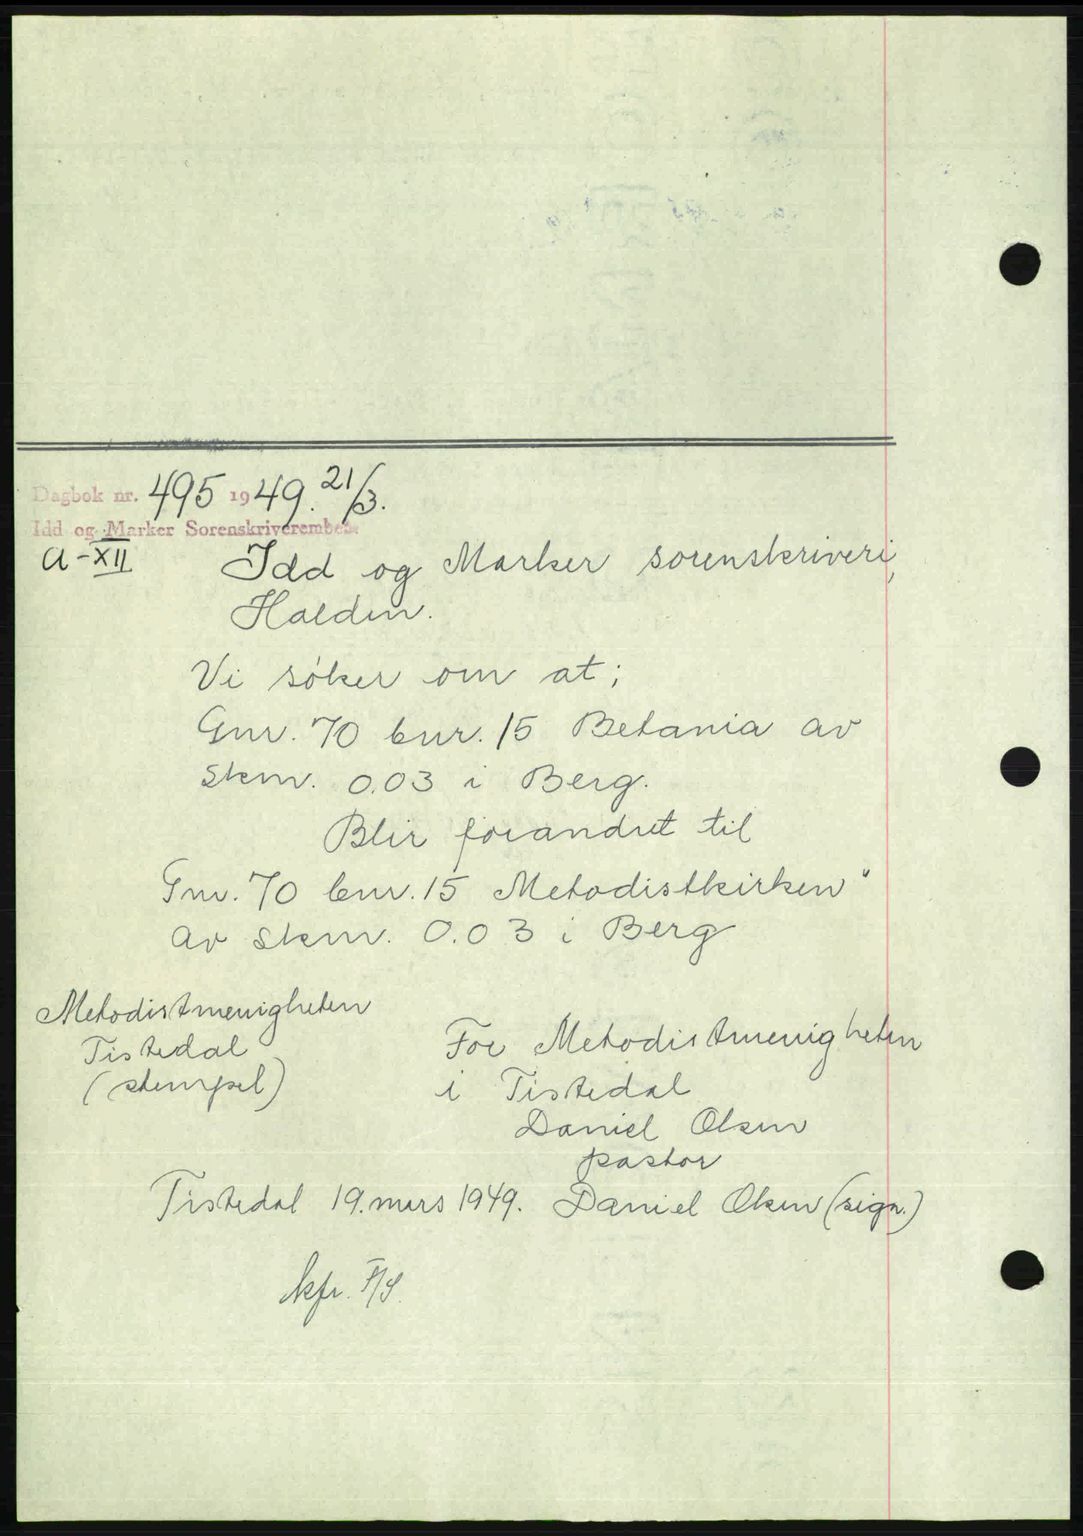 Dagbok nr. 495 1949. 21/3.
Idd og Marker Sorenskriverembede
a-XII
Idd og Marker sorenskriveri,
Halden.
Vi søker om at;
Gnr. 70 bnr. 15 Betania av
skm. 0.03 i Berg.
Blir forandret til
Gnr. 70 bnr. 15 Metodistkirken"
av skm. 0.03 i Berg
Metodistmenigheten
Tistedal
(stempel)
For Metodistmenigheten
i Tistedal
Daniel Olsen
pastor
Tistedal 19. mars 1949. Daniel Olsen (sign.)
kfr.